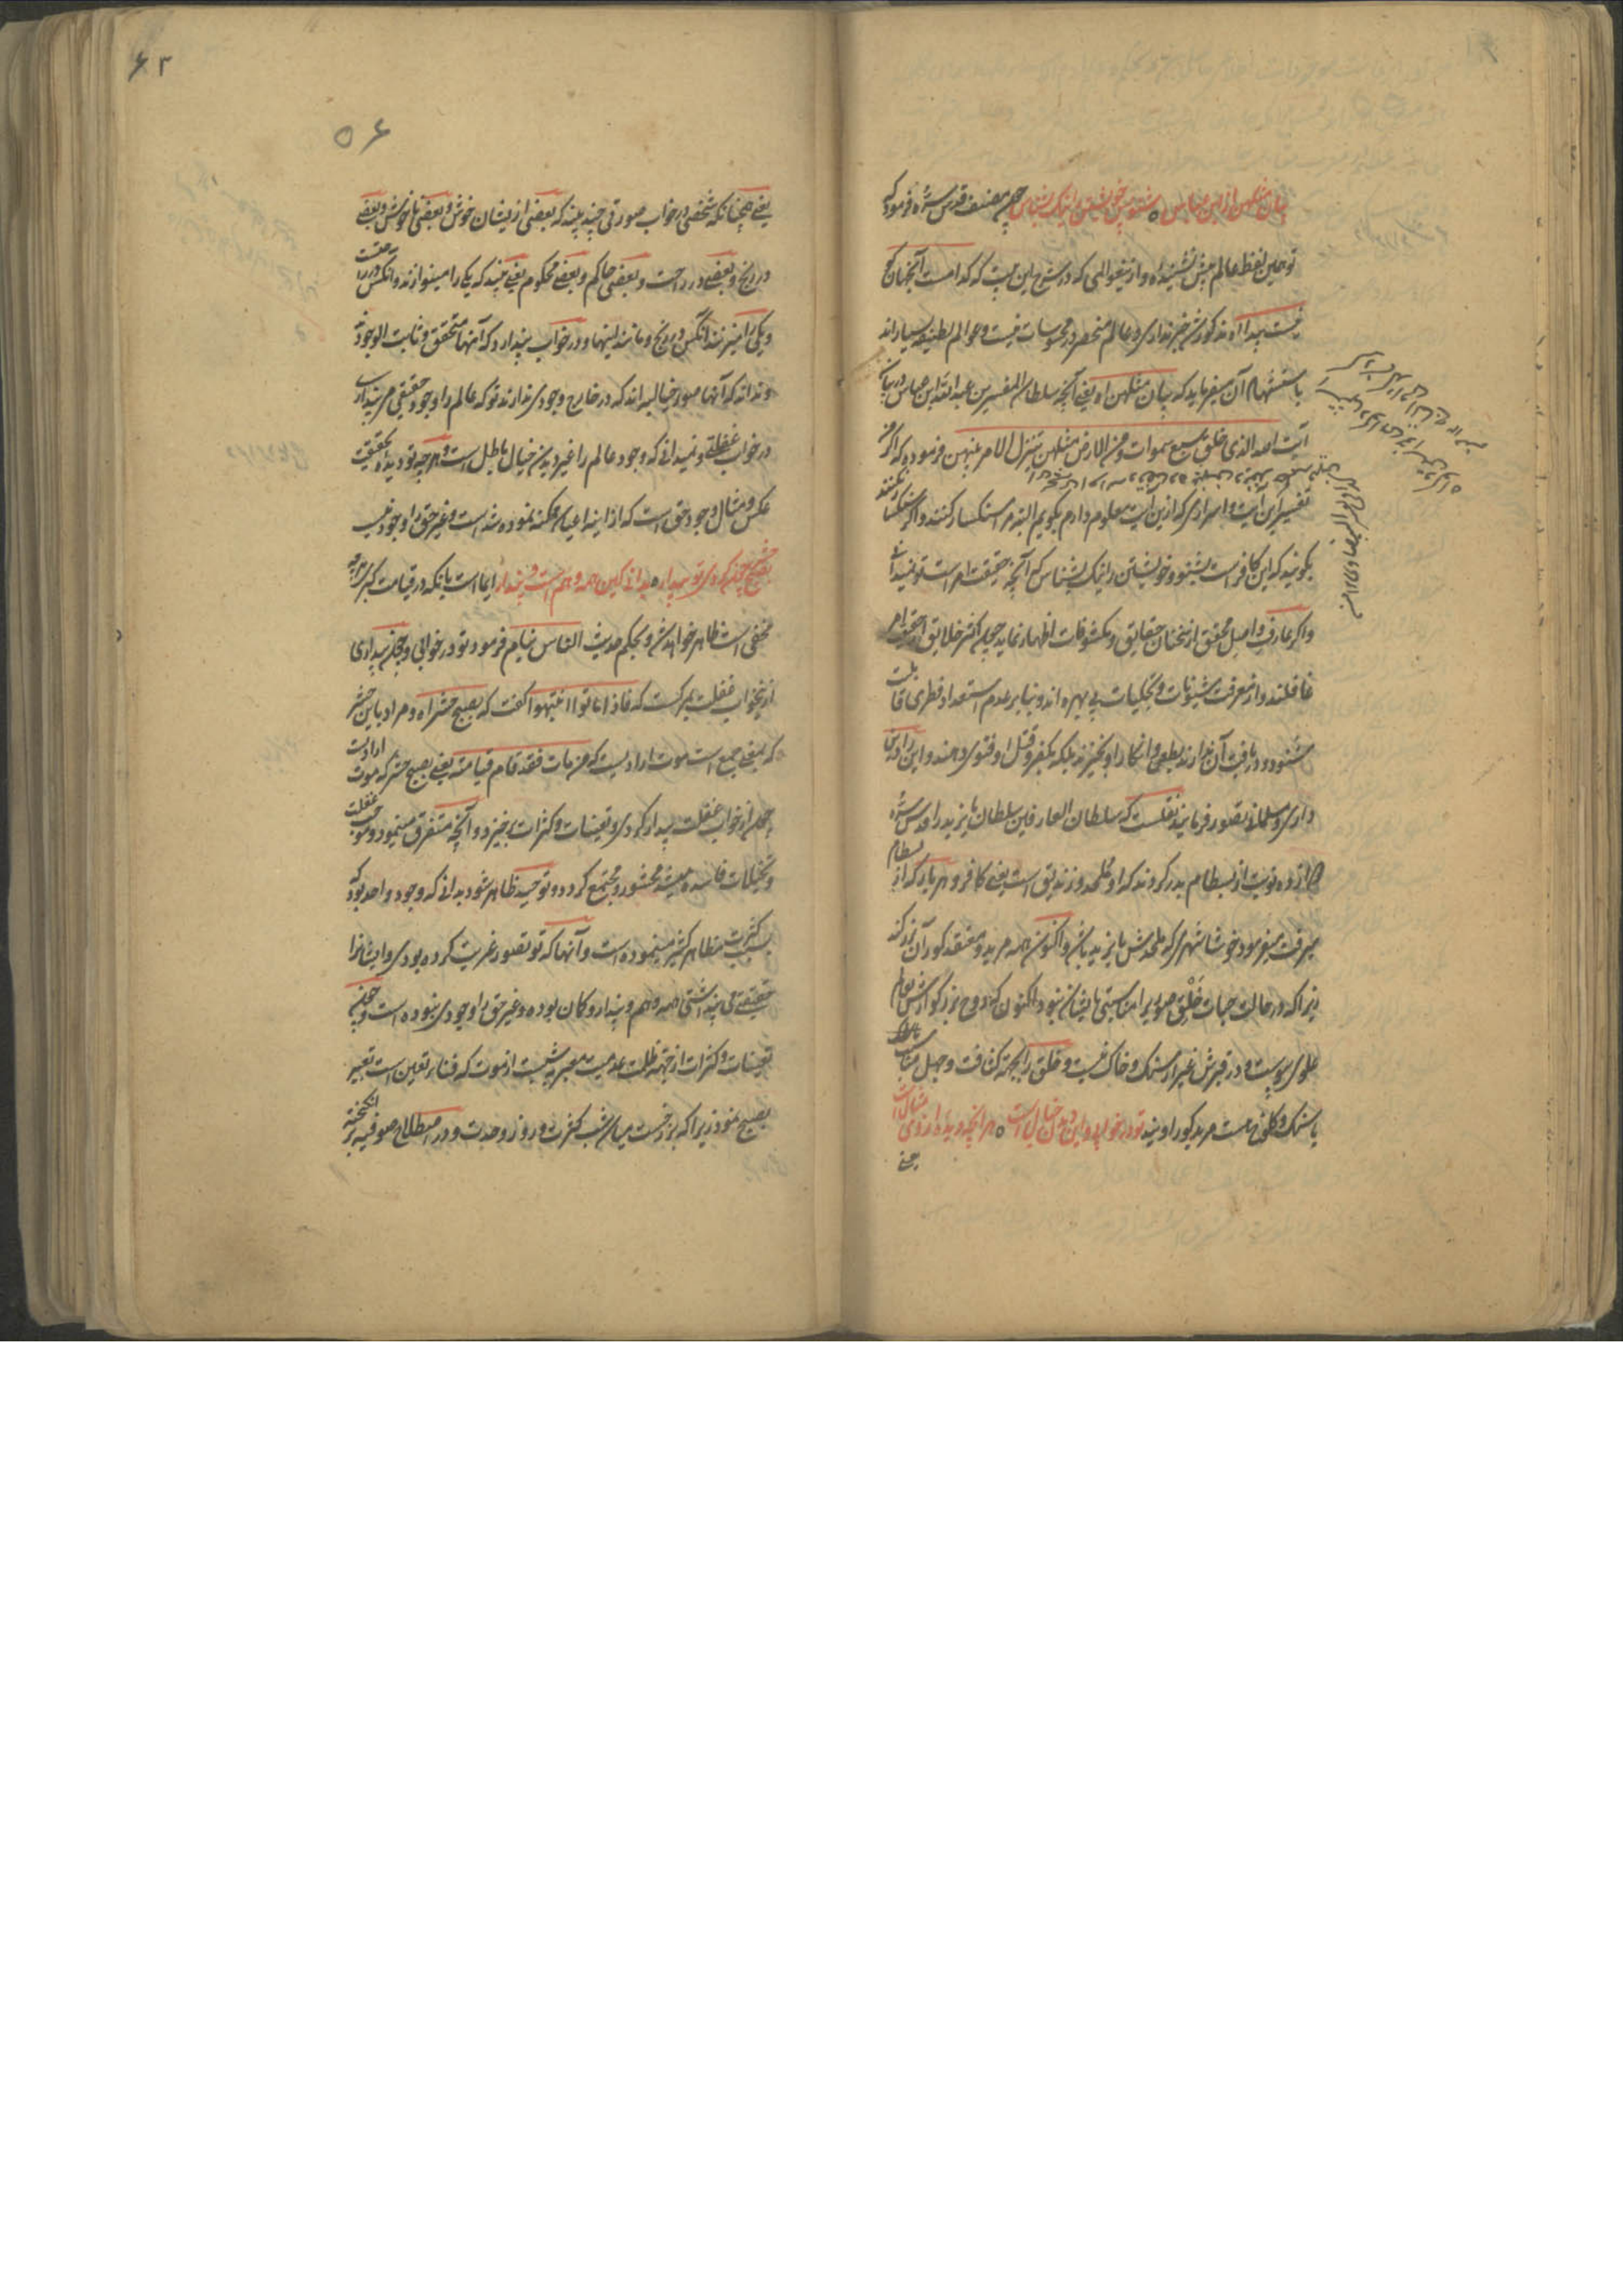 بیان مثلهن از ابن عباس ه شنو پس خویشتن را نیک بشناس چون مصنف قدس سره فرمود که
تو همین لفظ عالم بیش نشنیده و از نیفهمی که در شرح این بیت که کدام است آنجهان کو
نیست پیدا اه مذکور شد خبر نداری و عالم منحصر در محسوسات نیست و عوالم لطیفه بسیار اند
باستشهاد آن میفرماید که بیان مثلهن اه یعنی آنچه سلطان المفسرین عبد الله ابن عباس در بیان
آیت الله الذی خلق سبع سموات و من الارض مثلهن یتنزل الامر بینهن فرموده که اگر من
تفسیر این آیت و اسراری که ازین آیت معلوم دارم بگویم البته مرا سنکسار کنند و اگر سنکسار نکنند
بگویند که این کافر است بشنو و خویشتن را نیک بشناس که آنچه حقیقت امر است تو نمیدانی
و اگر عارف واصل محقق از سخنان حقایق و مکشوفات اظهار نماید چون اکثر خلایق از حقیقت امر
غافلند و از معرفت شیونات و تجلیات بی بهره اند و بنابر عدم استعداد فطری قابلیت
شنود و دریافت آن ندارند بطعن و انکار او بخیزند بلکه بکفر و قتل او فتوی دهند و این را دین
داری و مسلمانی تصور فرمایند نقلست که سلطان العارفین سلطان بایزید را قدس سره
دوازده نوبت از بسطام بدر کردند که او ملحد و زندیق است یعنی کافر و هر بار که از بسطام
میرفت میفرمود خوشا شهری که ملحدش بایزید باشد و اکنون همه مرید و معتقد کور آن بزرگند
زیرا که در حالت حیات خلق صوری را مناسبتی بایشان نبود اکنون که روح بزرگوارش بعالم
علوی پیوست و در قبرش غیر از سنک و خاک نیست و خلق را بجهة کثافت و جهل مناسبت
با سنک و کلوخ هست مرید کور اویند تو در خوابی و این دیدن خیال است ه هر آنچه دیده از وی مثال است
یعنی
۶۲
۵۶
یعنی همچنانکه شخصی در خواب صورتی چند بیند که بعضی از ایشان خوش و بعضی ناخوش و بعضی
در رنج و بعضی در راحت و بعضی حاکم و بعضی محکوم یعنی بیند که یکی را مینوازند و آنکس در راحت
و یکی را میزنند و آنکس در رنج و مانند اینها و در خواب پندارد که آنها متحقق و ثابت الوجودند
و نداند که آنها صور خیالیه اند که در خارج وجودی ندارند تو که عالم را وجود حقیقی می پنداری
در خواب غفلتی و نمیدانی که وجود عالم را غیر دیدن خیال باطل است و هر چه تو دیده بحقیقت
عکس و مثال وجود حق است که از آینه اعیان ممکنه نموده شده است و غیر حق را وجود نیست
بصبح حشر چون گردی تو بیدار ه بدانی کین همه وهم است و پندار ایما است بانکه در قیامت کبری هر چه
مخفی است ظاهر خواهد شد و بحکم حدیث الناس نیام فرمود تو در خوابی و چون بیداری
ازینخواب غفلت بمرگست که فاذا ماتوا انتبهوا گفت که بصبح حشر اه و مراد باین حشر
که بمعنی جمع است موت ارادیست که من مات فقد قام قیامته یعنی بصبح حشر که موت ارادیست
چون از خواب غفلت بیدار گردی و تعینات و کثرات برخیزد و آنچه متفرق مینمود و موجب غفلت
و تخیلات فاسده میشد محشور و مجتمع گردد و توحید ظاهر شود بدانی که وجود واحد بود که
بسبب کثرت مظاهر کثیر مینموده است و آنها که تو تصور غیریت کرده بودی و ایشانرا
حقیقتی می پنداشتی همه وهم و پندار و کان بوده و غیر حق را وجودی نبوده است و چون
تعینات و کثرات از جهة ظلمت عدمیت معبر بشب است از موت که فناء تعین است تعبیر
بصبح نمود زیرا که برزخست میان شب کثرت و روز وحدت و در اصطلاح صوفیه برانگیخته